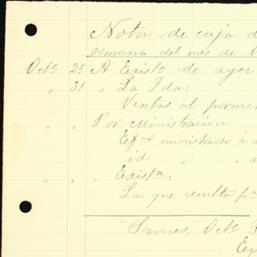 Nota de caja d
semana del mes de
Octe 25 A Existe de ayer
" 31 " La Fda:
Ventas al pormen
" " Por Ministracion:
Efvo ministrado á
id " " a
" " " Existe:
La que resulta pa
Octe
Ex